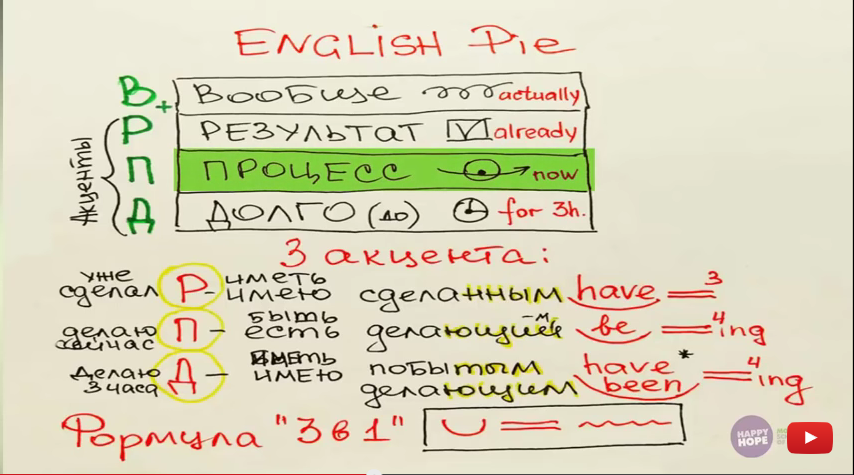 ENGLISH Pie
В+ Вообще actually
Р РЕЗУЛЬТАТ V already
П ПРОЦЕСС now
Д ДОЛГО (до) for 3h.
Акценты
3 акцента:
уже сделал Р - иметь имею сделанным have 3
делаю сейчас П - быть есть делающий -м be 4 ing
Делаю 3 часа Д - иметь имею побытом делающим have been * 4 ing
Формула "3 в 1"
HAPPY HOPE